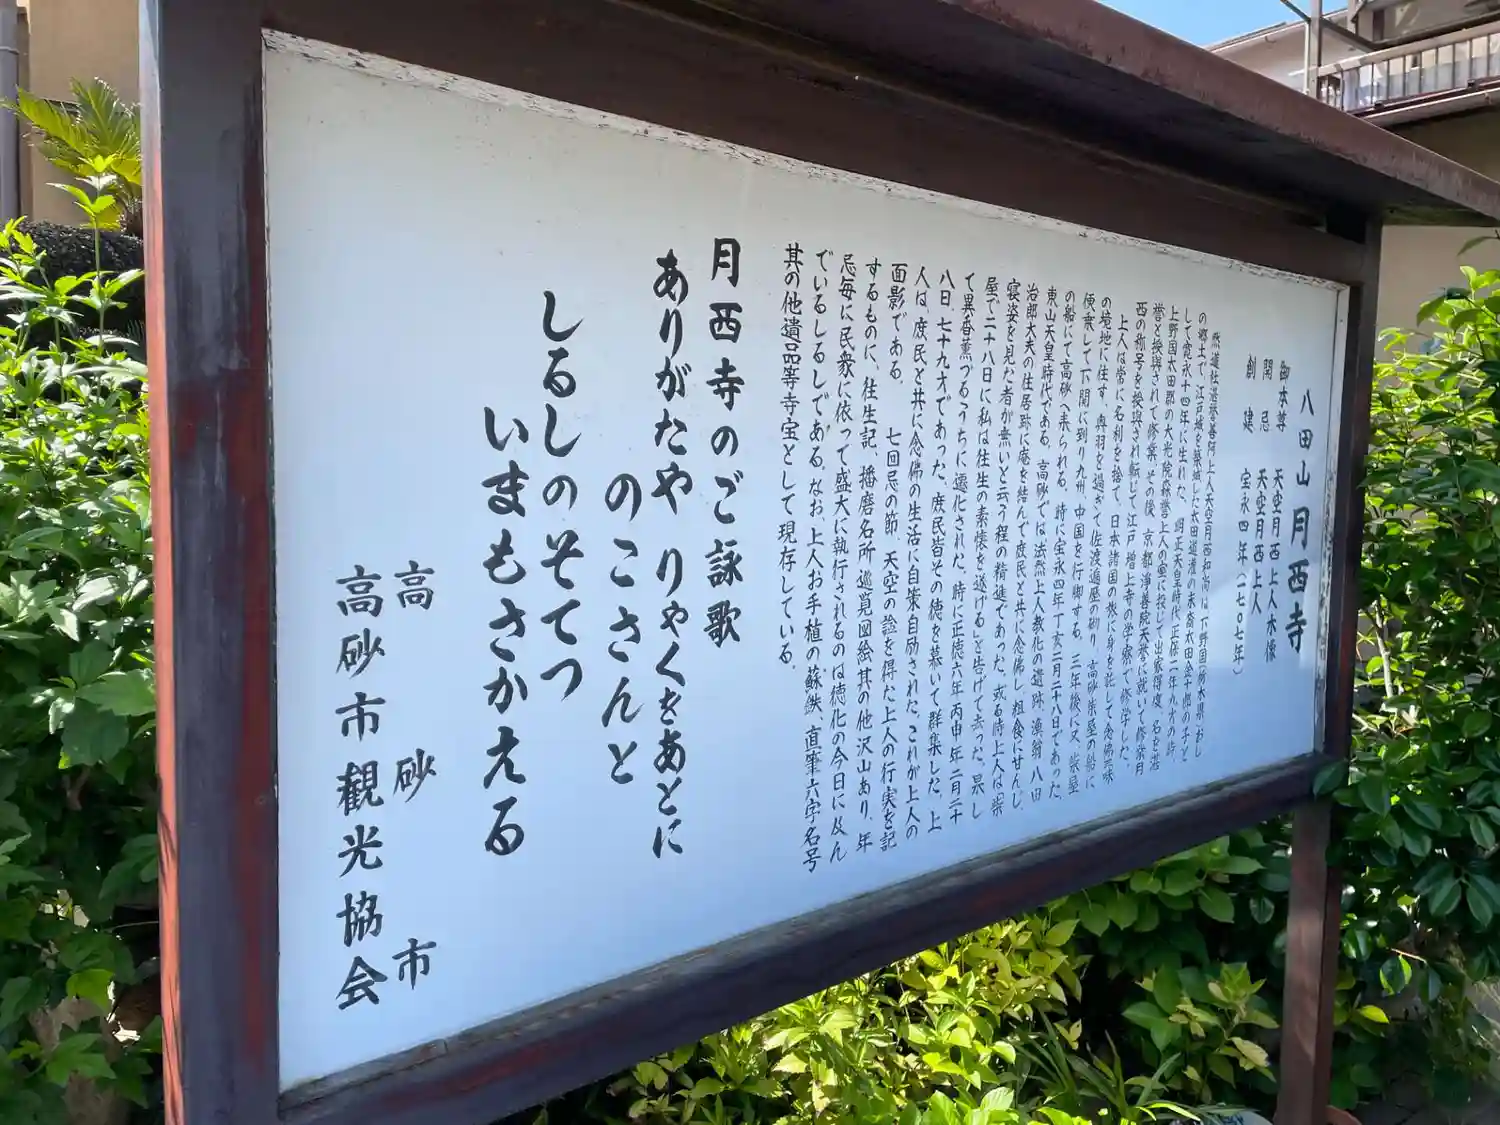 八田山月西寺
御本尊 天空月西上人木像
開忌 天空月西上人
創建 宝永四年(一七〇七年)
然蓮社選誉善阿上人天空月西和尚は下野国(栃木県)おし
の郷土で、江戸城を築城した太田道灌の末裔太田金十郎の子と
して寛永十四年に生れた。明正天皇時代、正保二年九才の時、
上野国太田郡の大光院森誉上人の室に投じて出家得度、名を湛
誉と授与されて修業、その後、京都浄善院天誉に就いて修業月
西の称号を授与され転じて江戸増上寺の学寮で修学した。
上人は常に名利を捨て、日本諸国の旅に身を託して念佛三昧
の境地に住す。奥羽を過ぎて佐渡遍歴の砌り、高砂柴屋の船に
便乗して下関に到り九州、中国を行脚する。三年後に又、柴屋
の船にて高砂へ来られる。時に宝永四年丁亥二月二十八日であった、
東山天皇時代である。高砂では法然上人教化の遺跡、漁翁八田
治郎大夫の住居跡に庵を結んで庶民と共に念佛し粗食に甘んじ
寝姿を見た者が無いと云う程の精進であった。或る時上人は「柴
屋で二十八日に私は往生の素懐を遂げる」と告げて去った。果し
て異香薫づるうちに遷化された。時に正徳六年丙申年二月二十
八日、七十九才であった。庶民皆その徳を慕いて群集した。上
人は、庶民と共に念佛の生活に自策自励された。これが上人の
面影である。 七回忌の節、天空の諡を得た上人の行実を記
するものに、往生記、播磨名所巡覧図絵其の他沢山あり、年
忌毎に民衆に依って盛大に執行されるのは徳化の今日に及ん
でいるしるしである。なお、上人お手植の蘇鉄、直筆六字名号
其の他遺品等寺宝として現存している。
月西寺のご詠歌
ありがたや りゃくをあとに
のこさんと
しるしのそてつ
いまもさかえる
高砂市
高砂市観光協会